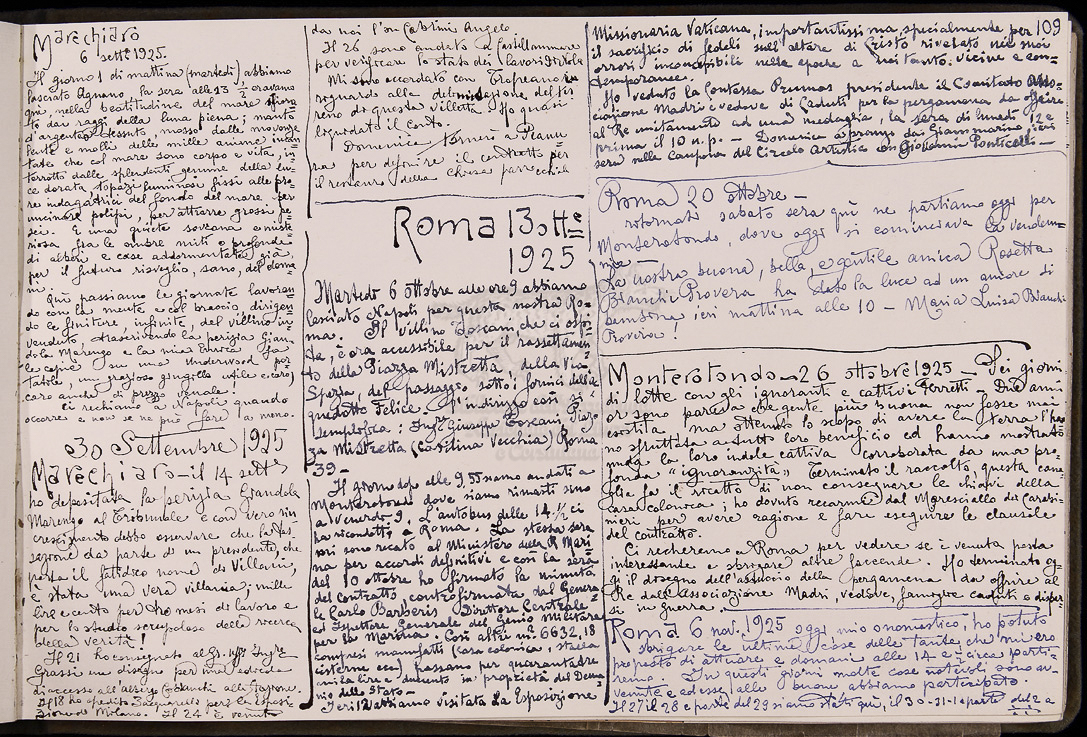 Marechiaro
6 sett. 1925.
Il giorno 1 di mattina (martedì) abbiamo
lasciato Agnano la sera alle 13 ½ eravamo
qui, nella beatitudine del mare
dai raggi della luna piena; manto
d'argento tessuto, mosso dalle movenze
lente e molli delle mille anime
che col mare sono corpo e vita,
dalle splendenti gemme della lu=
ce dorata, topazi luminosi fissi alle pro=
re indagatrici del fondo del mare per
uncinare polipi, per attrarre grossi pe=
sci. È una quiete sovrana e miste=
riosa fra le ombre miti e profonde
di alberi e case addormentate già
per il futuro risveglio, sano, del doma=
ni.
Qui passiamo le giornate lavoran=
do con la mente e col braccio dirigen=
do le finiture, infinite, del villino in=
venduto, trascrivendo la perizia Gran=
dola Marengo e la mia Enrica fa
le copie su una Underwood por=
tatile, un grazioso gingillo utile e caro,
caro anche di prezzo venale!
Ci rechiamo a Napoli quando
occorre e non se ne può fare a meno.
30 Settembre 1925
Marechiaro - il 14 sett.
ho depositata la perizia Grandola
Marengo al Tribunale e con vero rin=
crescimento debbo osservare che la tas=
sazione da parte di un presidente, che
porta il fatidico nome di Villari,
è stata una vera villania; mille
lire e cento per tre mesi di lavoro e
per lo studio scrupoloso della ricerca
della verità!
Il 21 ho consegnato al Gr. Uff. Ingre
Grassi un disegno per
di accesso all'albergo alla stazione.
Il 18 ho spedito per la esposi=
zione di Milano. Il 24 è venuto
da noi l'on Angelo.
Il 26 sono andato a Castellammare
per verificare lo stato dei lavori
Mi sono accordato con
riguardo alla delimitazione del ter=
reno di questa villetta. Ho quasi
liquidato il conto.
Domenica tornerò a Pianu
ra per definire il contratto per
il restauro della Chiesa parrocchiale
Roma 13 otte
1925
Martedì 6 ottobre alle ore 9 abbiamo
lasciato Napoli per questa nostra Ro=
ma. Il villino Toscani, che ci ospi=
ta, è ora accessibile per il rassettamen
to della Piazza Mistretta della Via
Spezia, del passaggio sotto i fornici della
quedotto Felice. L'indirizzo così si
semplifica: Ingre Giuseppe Toscani Piaz=
za Mistretta (Casilina Vecchia) Roma
39 -
Il giorno dopo alle 9,55 siamo andati a
Monterotondo dove siamo rimasti sino
a Venerdì 9. L'autobus delle 14 ½ ci
ha ricondotti a Roma. La stessa sera
mi sono recato al Ministero della R. Mari=
na per accordi definitivi e così la sera
del 10 ottobre ho firmato la minuta
del contratto, controfirmata dal Genera=
le Carlo Barberis Direttore Centrale
ed Ispettore Generale del Genio Militare
per la Marina. Così altri m² 6632,18
compresi manufatti (casa colonica, stalla
cisterne ecc) passano per quarantatre
mila lire e duecento in proprietà del Dema=
nio dello Stato -
Ieri 12 abbiamo visitata la Esposizione
109
Missionaria Vaticana, importantissima, specialmente per
il sacrificio di fedeli sull'altare di Cristo rivelato nei suoi
orrori inconcepibili nelle epoche a noi tanto vicine e con=
temporanee.
Ho veduto la Contessa Prunas presidente il Comitato Asso=
ciazione Madri e vedove di Caduti per la pergamena da offrire
al Re unitamente ad una medaglia, la sera di lunedì 12 e
prima il 10 u. p. - Domenica a pranzo dai Giammarino, ieri
sera nella Campina del Circolo Artistico con Giovannino Ponticelli -
Roma 20 ottobre -
ritornati sabato sera qui ne partiamo oggi per
Monterotondo, dove oggi si cominciava la vendem=
mia
La nostra buona, bella, e gentile amica Rosetta
Bianchi Provera ha dato la luce ad un amore di
bambina ieri mattina alle 10 - Maria Luisa Bianchi
Provera!
Monterotondo - 26 ottobre 1925 - Sei giorni
di lotte con gli ignoranti e cattivi Ferretti - Due anni
or sono pareva che gente più buona non fosse mai
esistita ma ottenuto lo scopo di avere la terra l'han=
no sfruttata a tutto loro beneficio ed hanno mostrato
nuda la loro indole cattiva corroborata da una pro=
fonda "ignoranzità" Terminato il raccolto, questa cana=
glia fa il ricatto di non consegnare le chiavi della
casa colonica; ho dovuto recarmi dal Maresciallo dei Carabi=
nieri per avere ragione e fare eseguire le clausole
del contratto.
Ci recheremo a Roma per vedere se è venuta posta
interessante e sbrigare altre faccende. Ho terminato og=
gi il disegno dell'astuccio della pergamena da offrire al
Re dall'Associazione Madri, vedove, famiglie caduti e disper=
si in guerra.
Roma 6 nov. 1925 oggi, mio onomastico, ho potuto
sbrigare le ultime cose delle tante che mi ero
proposto di attuare e domani alle 14 e ½ circa parti=
remo. In questi giorni molte cose notevoli sono av=
venute e ad esse, alle buone abbiamo partecipato.
Il 27 il 28 e parte del 29 siamo stati qui, il 30-31-1 e parte del 2 a